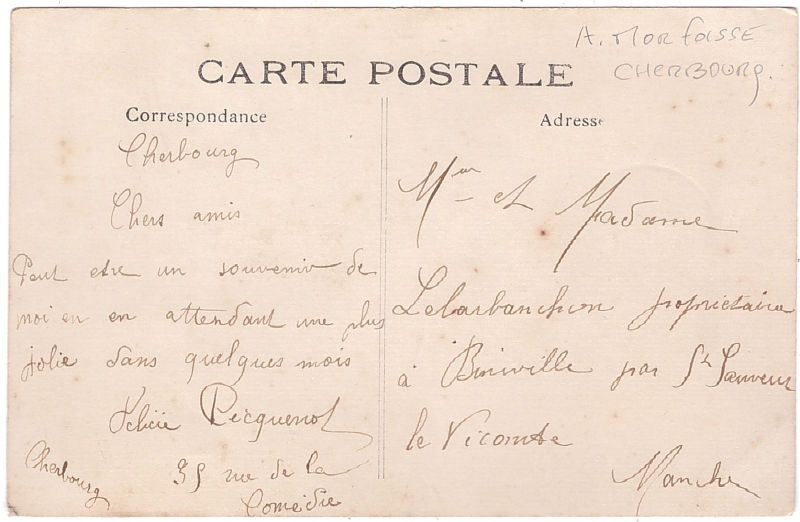 A. MORFASSE
CHERBOURG.
CARTE POSTALE
Correspondance
Cherbourg
Chers amis
Peut etre un souvenir de
moi en en attendant une plus
jolie dans quelques mois
Felicie Pecquenot
Cherbourg
35 rue de la
Comédie
Adresse
Mr et Madame
Lelarbanchon propriétaire
à Biniville par St Sauveur
le Vicomte
Manche